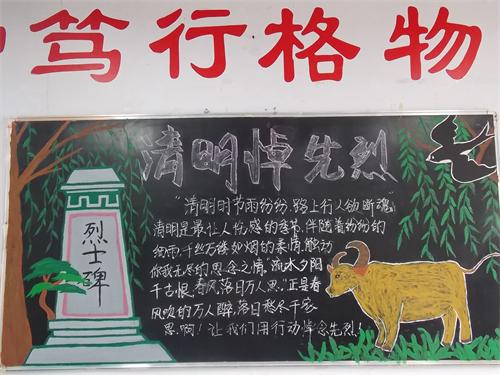 笃行格物
清明悼先烈
"清明时节雨纷纷,路上行人欲断魂"
清明是最壮人伤感的季节,伴随着纷纷的
细雨,千丝万缕如烟的柔情,触动
你我无尽的思念之情"流水夕阳
千古恨,春风落日万人思。"正是春
风吹的万人醉,落日愁尽千家
思啊!让我们用行动悼念先烈!
烈士碑